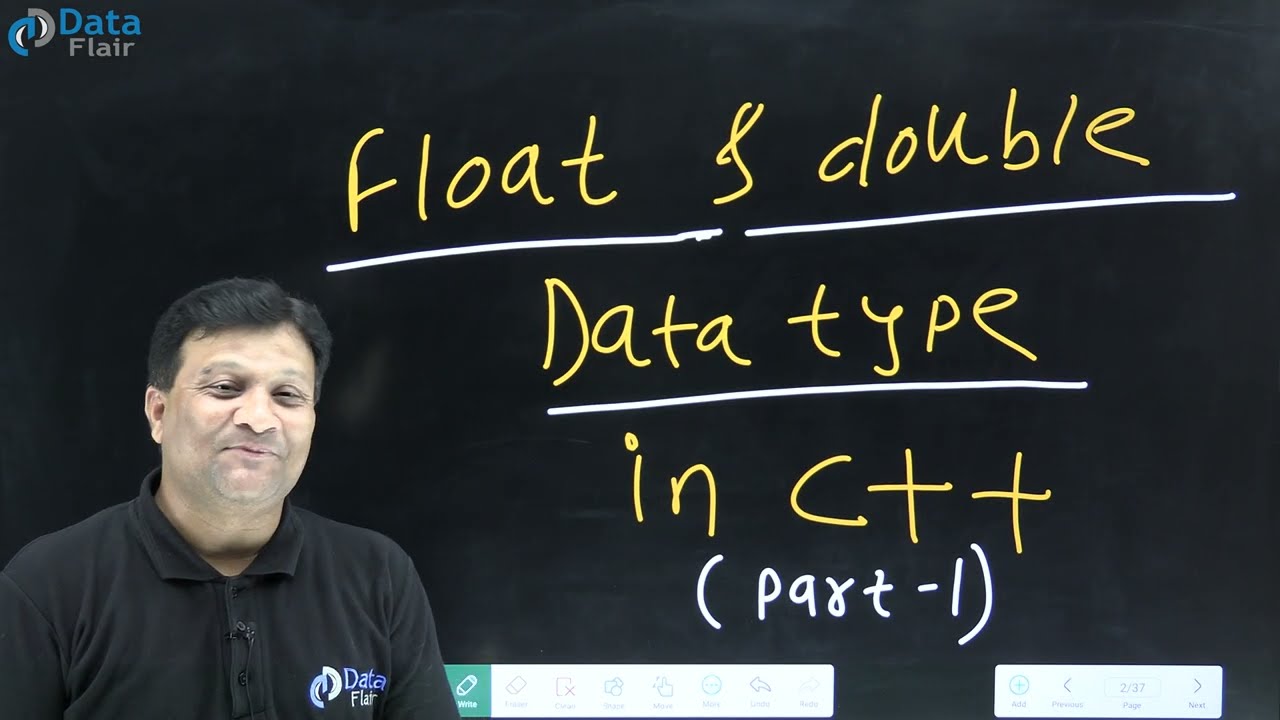 Data
Flair
Float & double
Data type
in C++
(part-1)
Data
Flair
Write
Eraser
Clean
Shape
Move
More
Undo
Redo
Add
Previous
2/37
Page
Next